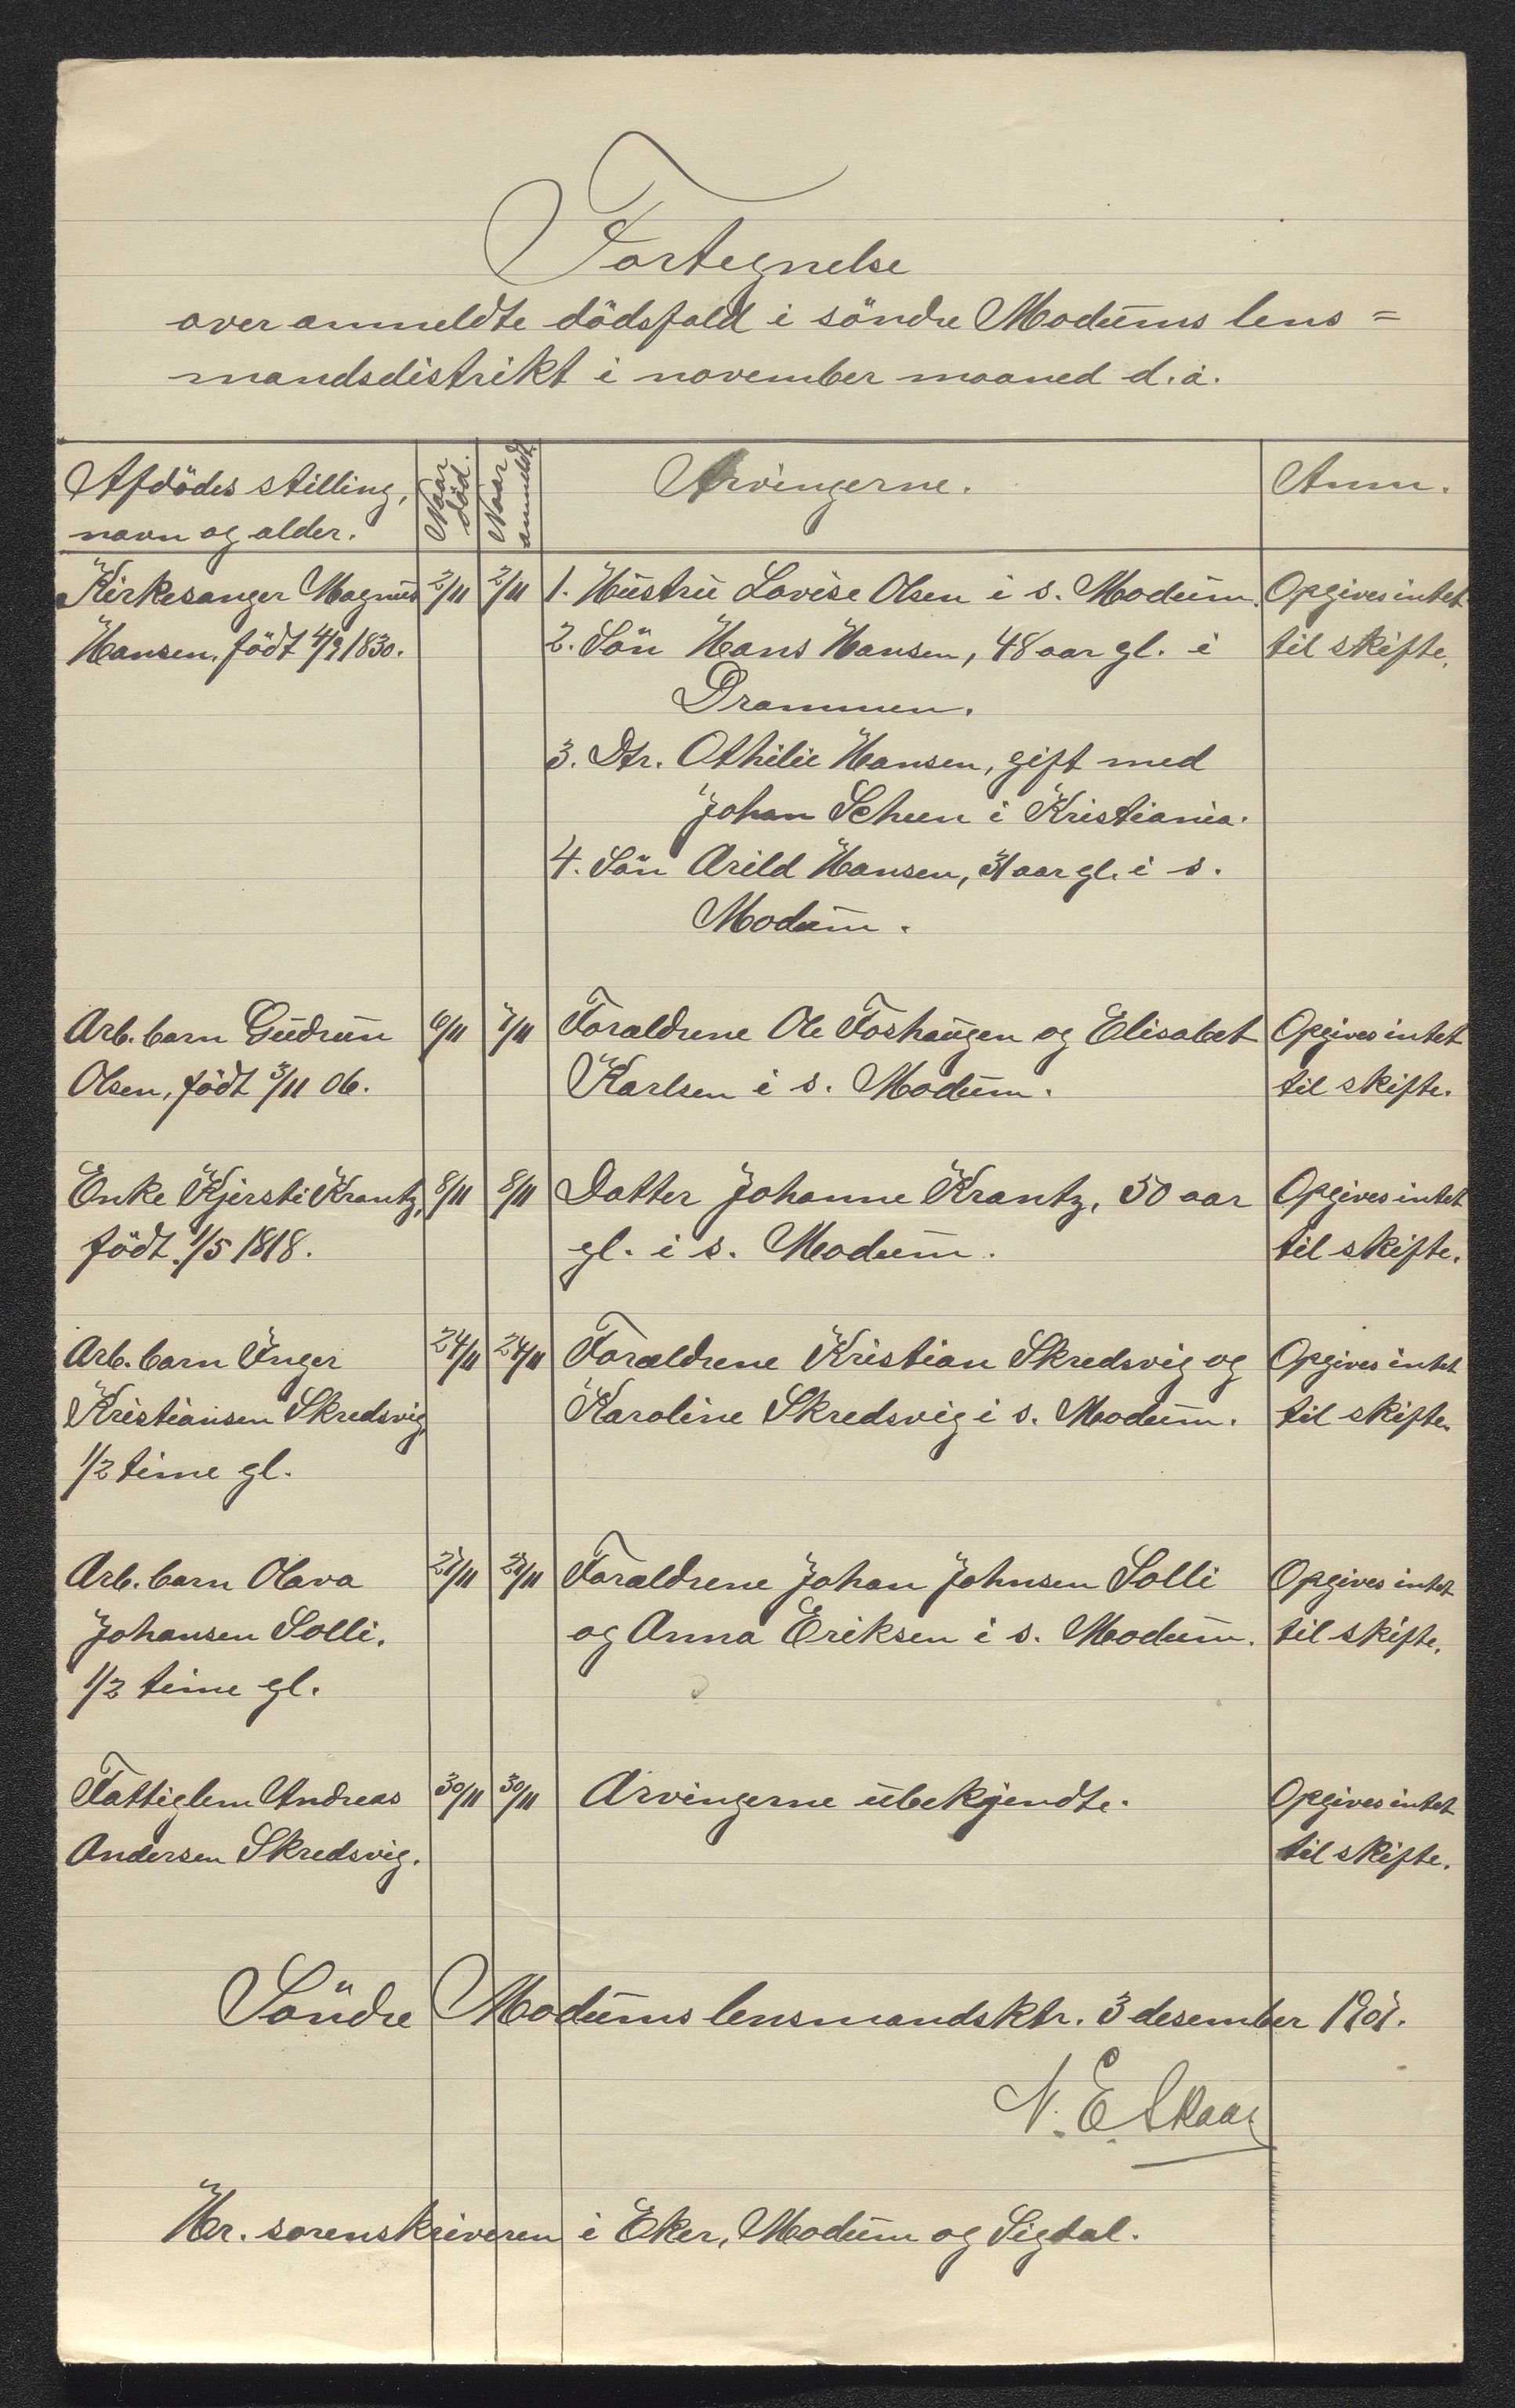 Fortegnelse
over anmeldte dödsfald i söndre Modums lens=
mandsdistrikt i november maaned d. å.
Afdödes stilling, navn og alder. Naar död. Naar anmeldt. Arvingerne. Anm.
Kirkesanger Magnus 2/11 2/11 1. Hustru Lovise Olsen i s. Modum. Opgives intet
Hansen, födt 4/9 1830. 2. Sön Hans Hansen, 48 aar gl. i til skifte.
Drammen.
3. Dtr. Othilie Hansen, gift med
Johan Scheen i Kristiania.
4. Sön Arild Hansen, 31 aar gl. i s.
Modum.
Arb. barn Gudrun 6/11 7/11 Forældrene Ole Foshaugen og Elisabet Opgives intet
Olsen, födt 3/11 06. Karlsen i s. Modum. til skifte.
Enke Kjersti Krantz, 8/11 8/11 Datter Johanne Krantz, 50 aar Opgives intet
födt 1/5 1818. gl. i s. Modum. til skifte.
Arb. barn Inger 24/11 24/11 Forældrene Kristian Skredsvig og Opgives intet
Kristiansen Skredsvig, Karoline Skredsvig i s. Modum. til skifte.
1/2 time gl.
Arb. barn Olava Forældrene Johan Johnsen Solli Opgives intet
Johansen Solli, og Anna Eriksen i s. Modum. til skifte.
1/2 time gl.
Fattiglem Andreas 30/11 30/11 Arvingerne ubekjendte. Opgives intet
Andersen Skredsvig. til skifte.
Söndre Modums lensmandsktr. 3 desember 1907.
N. E. Skaar
Hr. sorenskriveren i Eker, Modum og Sigdal.